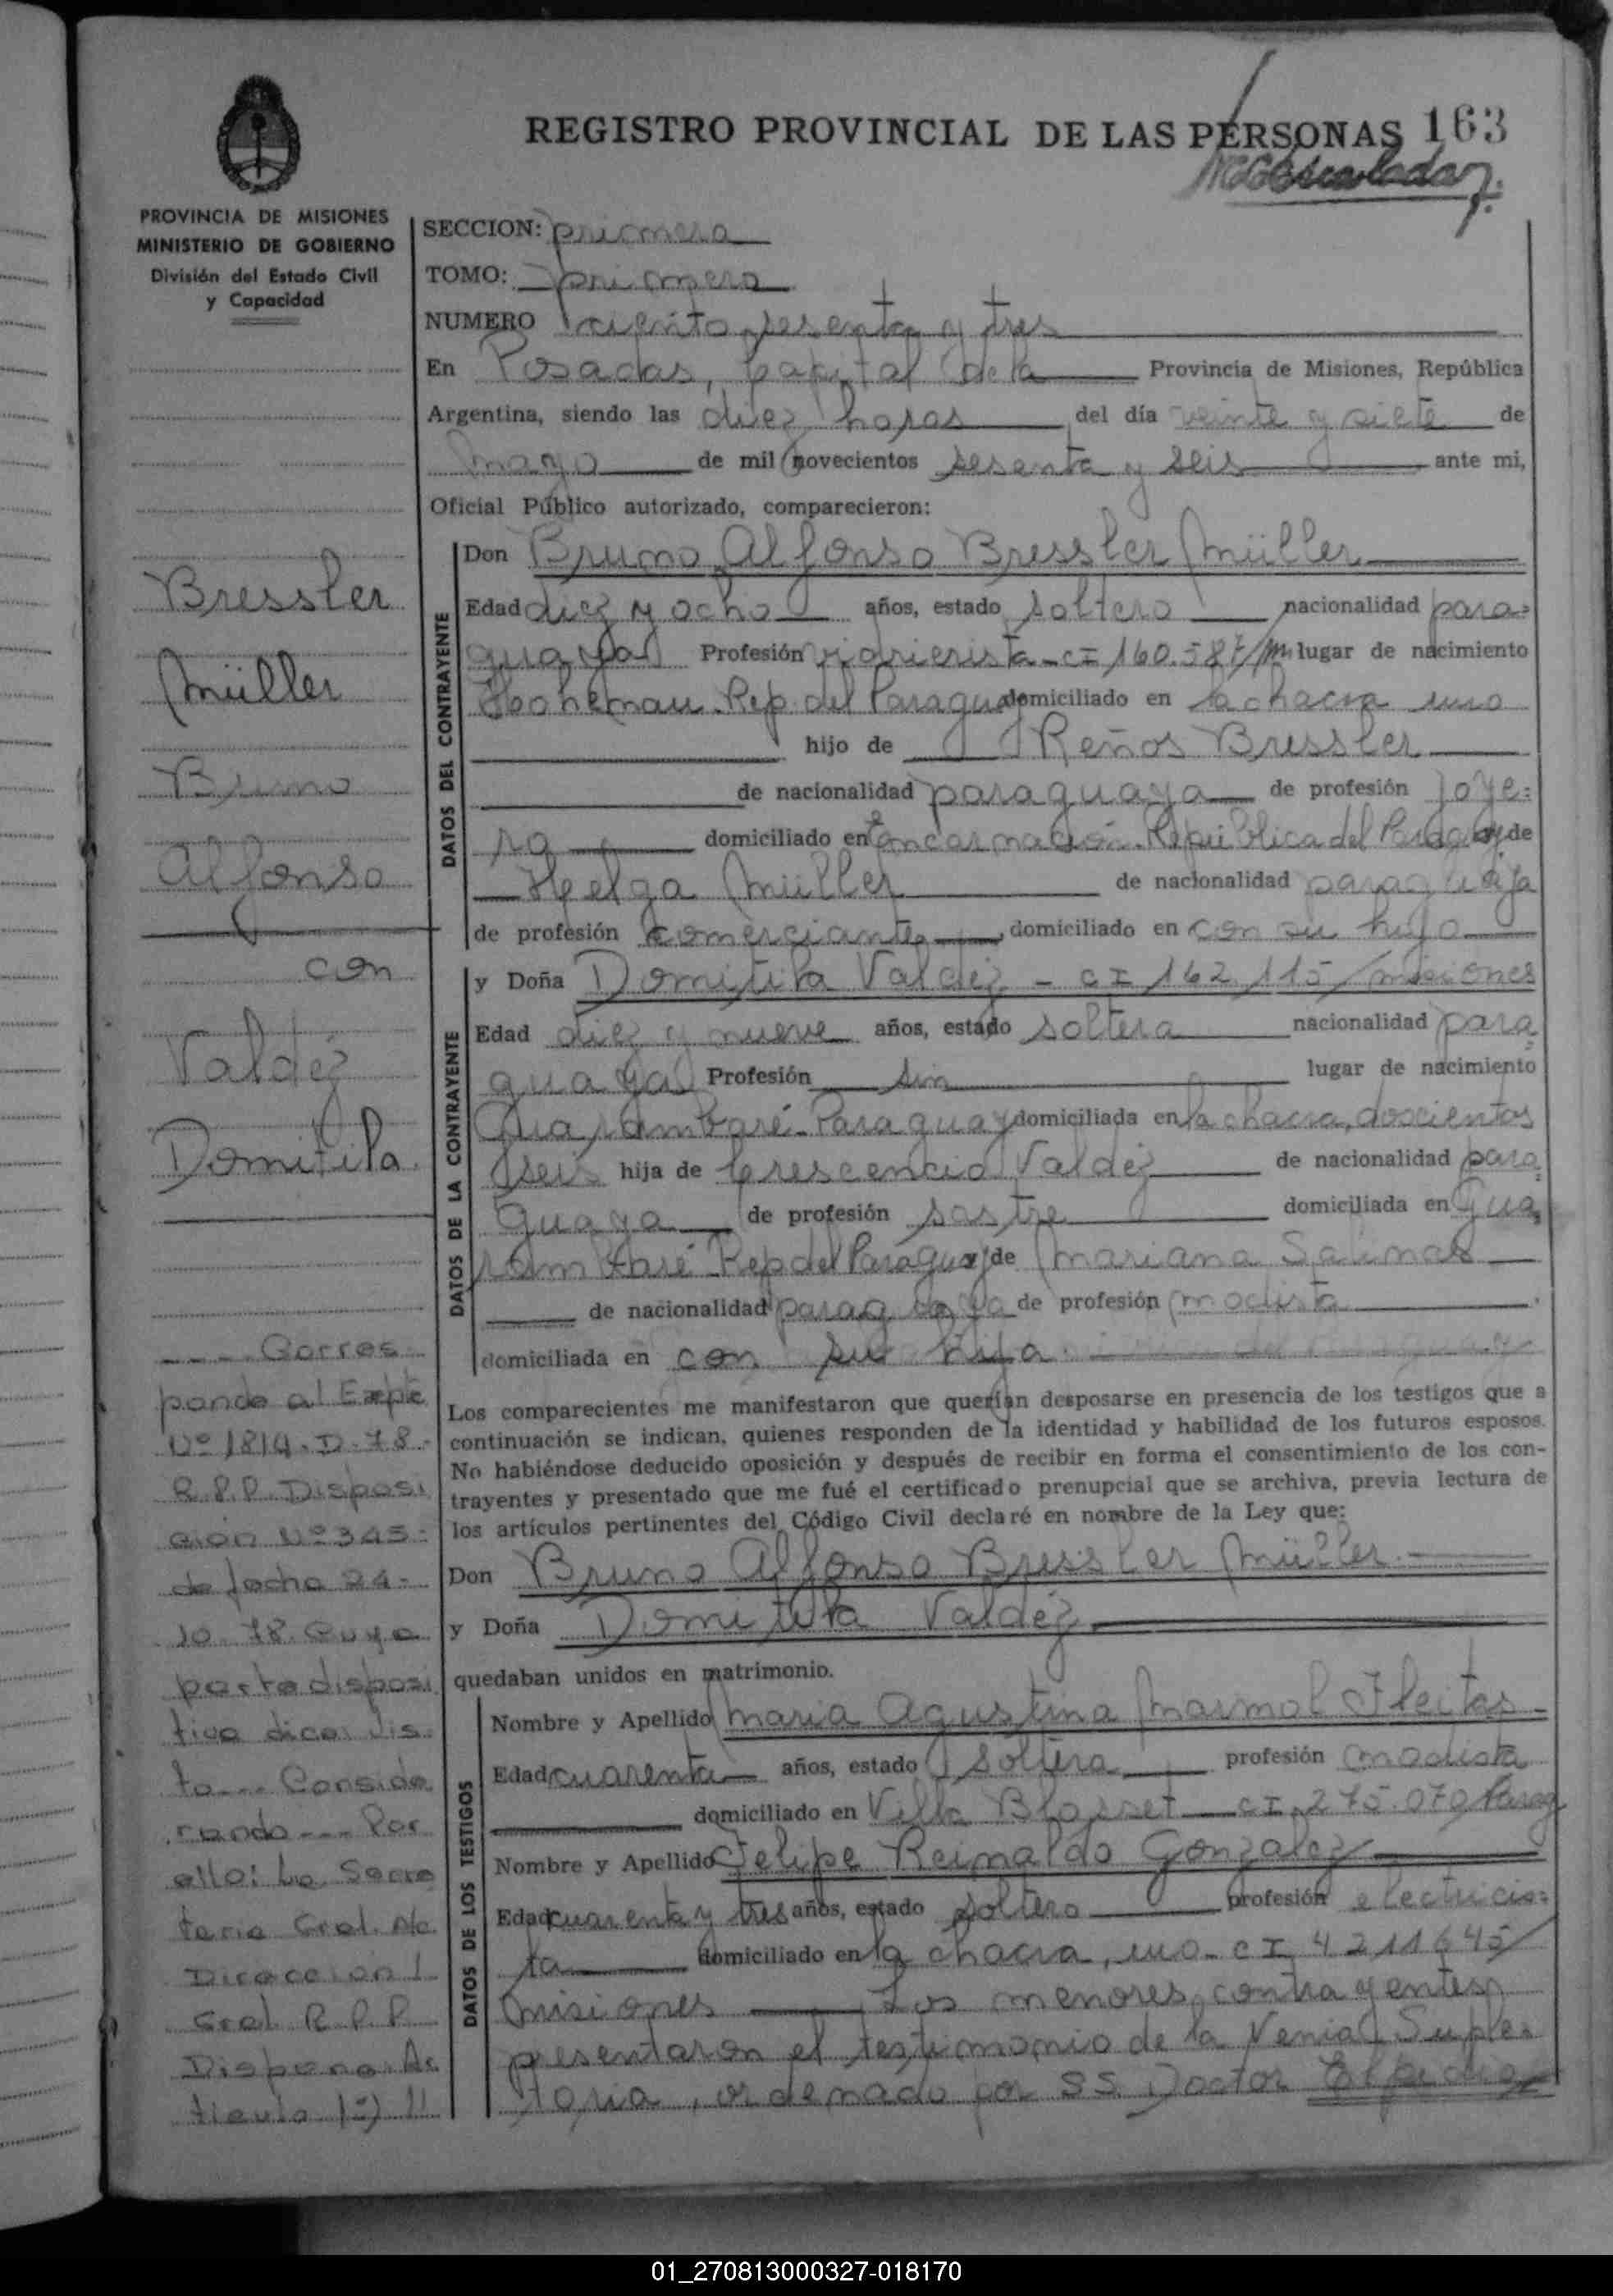 REGISTRO PROVINCIAL DE LAS PERSONAS 163
PROVINCIA DE MISIONES
MINISTERIO DE GOBIERNO
División del Estado Civil
y Capacidad
Bressler
Müller
Bruno
Alfonso
con
Valdéz
Domitila
---- Corres
ponde al Expte
Nº 1814. D. 78.-
R.P.P. Disposi
ción Nº 345-
de fecha 24-
10-78. Cuya
parte disposi
tiva dice: Vis
to--- Conside
rando--- Por
ello: La Secre
taria Gral. A/c
Dirección
Gral R.P.P.
Dispone: Ar
tículo 1º)
SECCION: primera
TOMO: primero
NUMERO ciento sesenta y tres
En Posadas, Capital de la Provincia de Misiones, República
Argentina, siendo las diez horas del día veinte y siete de
mayo de mil novecientos sesenta y seis ante mi,
Oficial Público autorizado, comparecieron:
DATOS DEL CONTRAYENTE
Don Bruno Alfonso Bressler Müller
Edad diez y ocho años, estado soltero nacionalidad para=
guaya Profesión vidrierista - CI 160.587/M lugar de nacimiento
Hohenau. Rep. del Paraguay domiciliado en la chacra uno
hijo de Reños Bressler
de nacionalidad paraguaya de profesión joye=
ro domiciliado en Encarnación. República del Paraguay y de
Helga Müller de nacionalidad paraguaya
de profesión comerciante, domiciliado en con su hijo
DATOS DE LA CONTRAYENTE
y Doña Domitila Valdéz - CI 162.115/misiones
Edad diez y nueve años, estado soltera nacionalidad para
guaya Profesión sin lugar de nacimiento
Guarambaré - Paraguay domiciliada en la chacra, doscientos
seis hija de Crescencio Valdéz de nacionalidad para=
guaya de profesión sastre domiciliada en Gua,
rambaré Rep del Paraguay y de Mariana Salinas
de nacionalidad paraguaya de profesión modista
domiciliada en con su hija
Los comparecientes me manifestaron que querían desposarse en presencia de los testigos que a
continuación se indican, quienes responden de la identidad y habilidad de los futuros esposos.
No habiéndose deducido oposición y después de recibir en forma el consentimiento de los con-
trayentes y presentado que me fué el certificado prenupcial que se archiva, previa lectura de
los artículos pertinentes del Código Civil declaré en nombre de la Ley que:
Don Bruno Alfonso Bressler Müller.
y Doña Domitila Valdéz
quedaban unidos en matrimonio.
DATOS DE LOS TESTIGOS
Nombre y Apellido Maria Agustina Marmol Fleitas
Edad cuarenta años, estado soltera profesión modista
domiciliado en Villa Blosset - CI. 275.070/Parag
Nombre y Apellido Felipe Reinaldo Gonzalez
Edad cuarenta y tres años, estado soltero profesión electricis=
ta domiciliado en la chacra, uno - CI 4211645/
misiones Los menores contrayentes
presentaron el testimonio de la Venia Suple=
toria, ordenado por SS. Doctor Elpidio
01_270813000327-018170